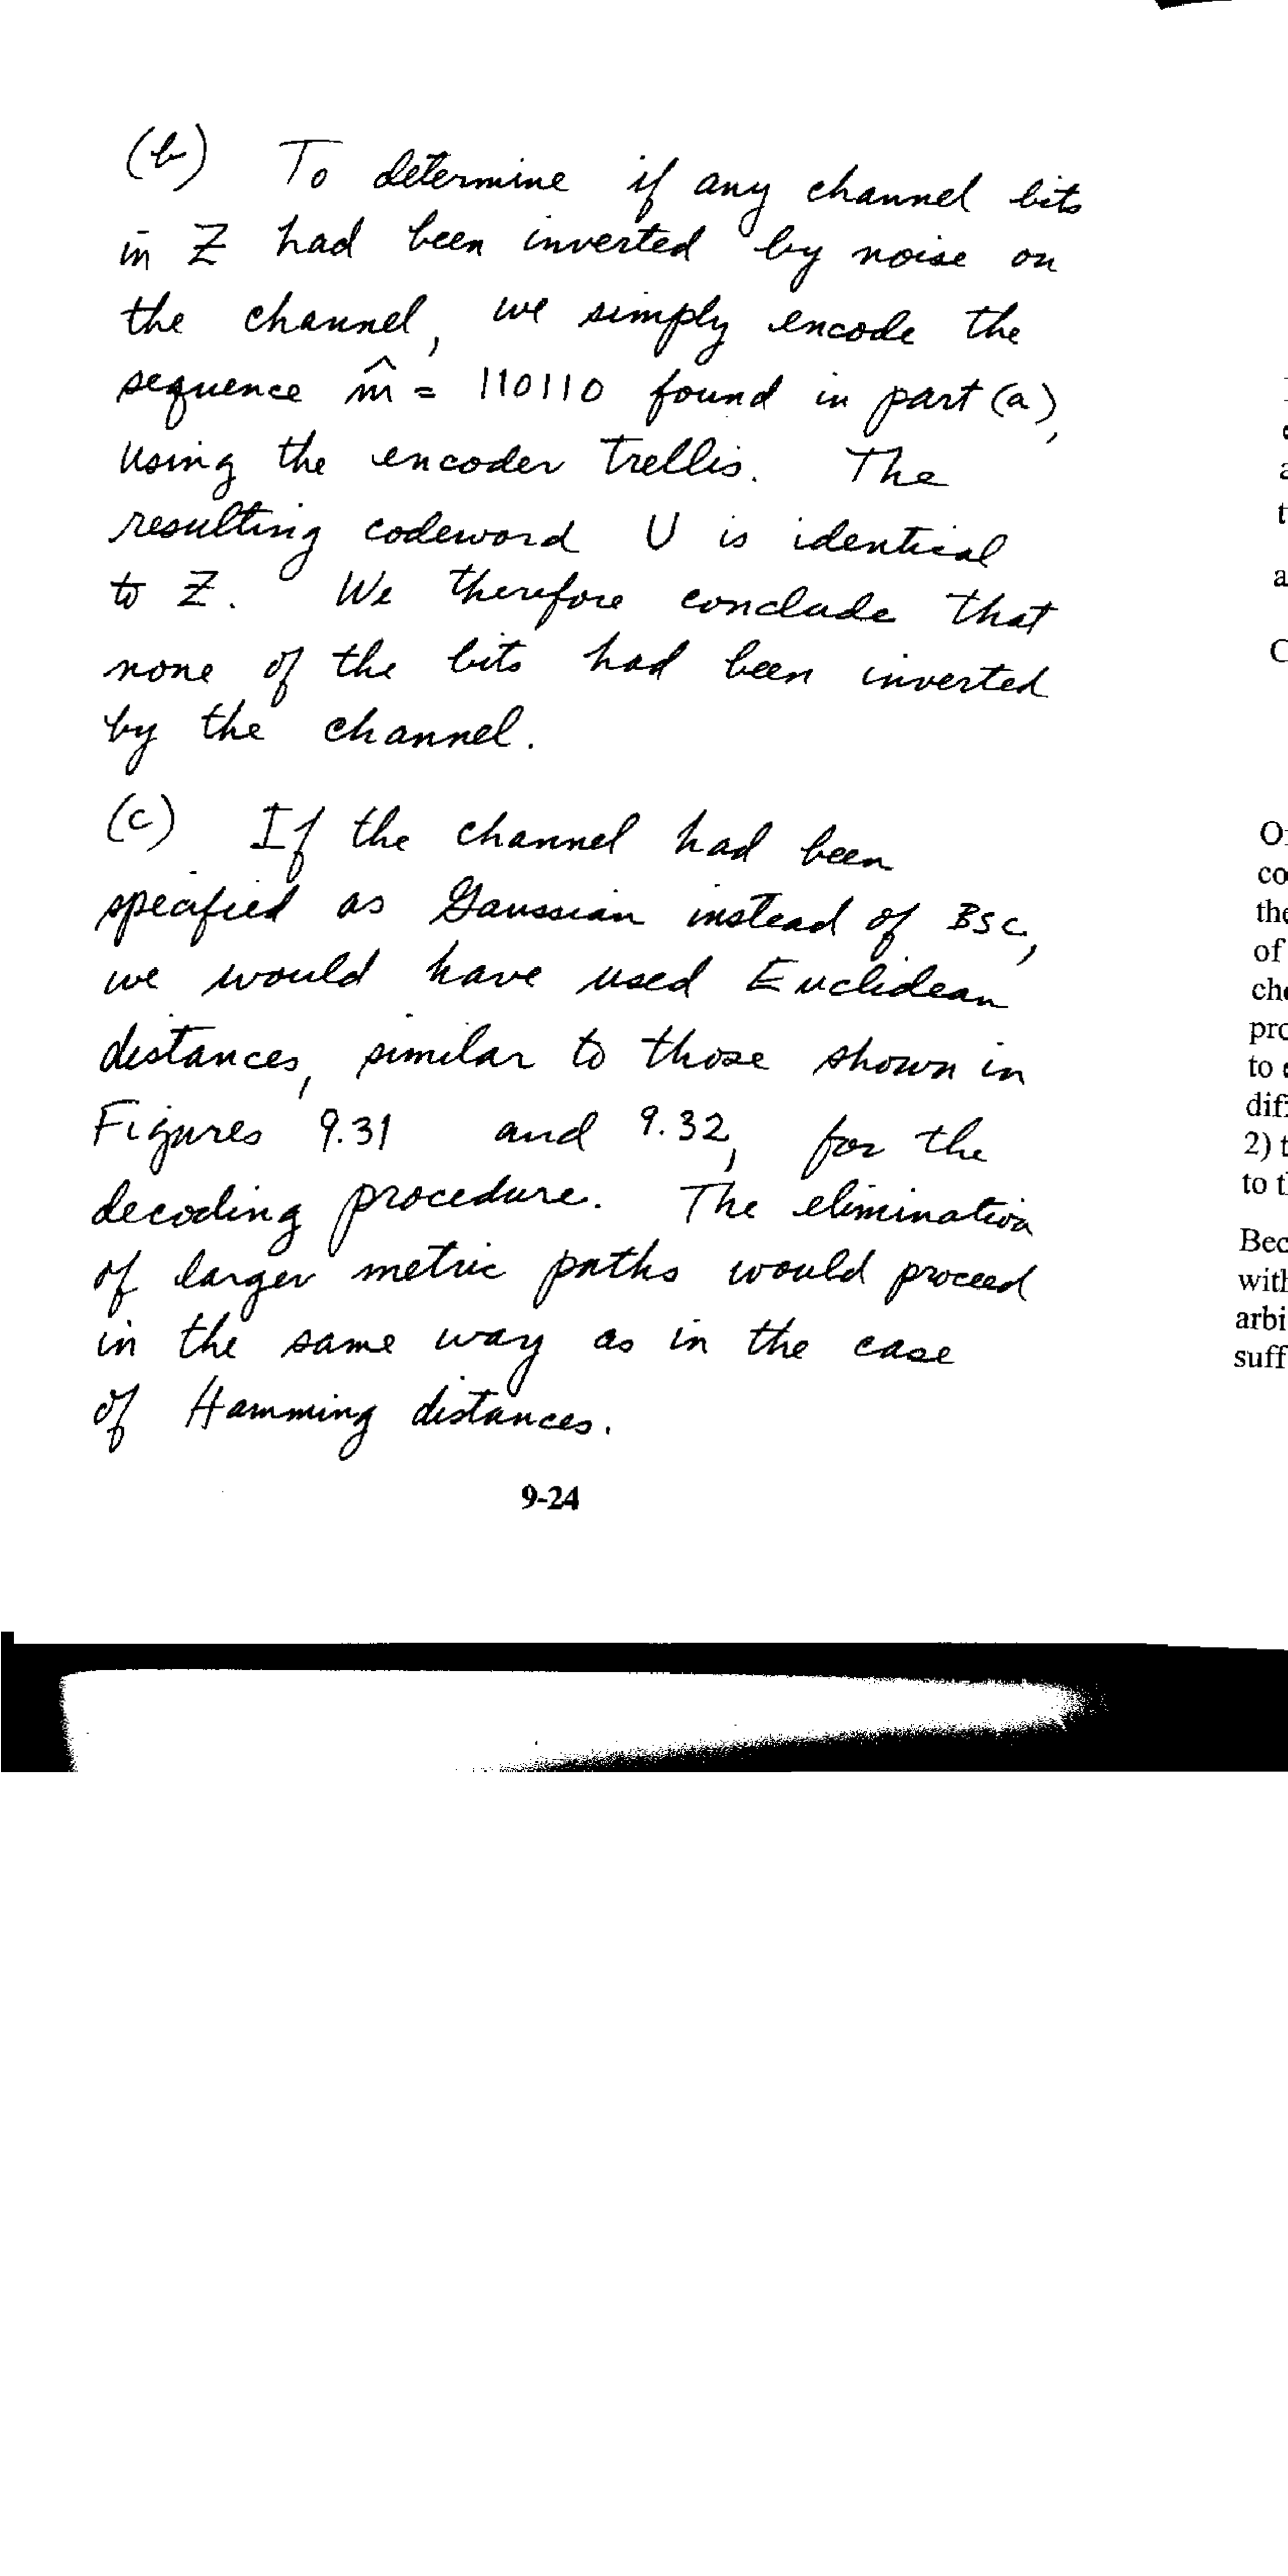 (b) To determine if any channel bits
in Z had been inverted by noise on
the channel, we simply encode the
sequence m̂ = 110110 found in part (a),
using the encoder trellis. The
resulting codeword U is identical
to Z. We therefore conclude that
none of the bits had been inverted
by the channel.
(c) If the channel had been
specified as Gaussian instead of BSC,
we would have used Euclidean
distances, similar to those shown in
Figures 9.31 and 9.32, for the
decoding procedure. The elimination
of larger metric paths would proceed
in the same way as in the case
of Hamming distances.
9-24
a
C
co
the
of
to
2) t
to t
Bec
with
arbi
suff